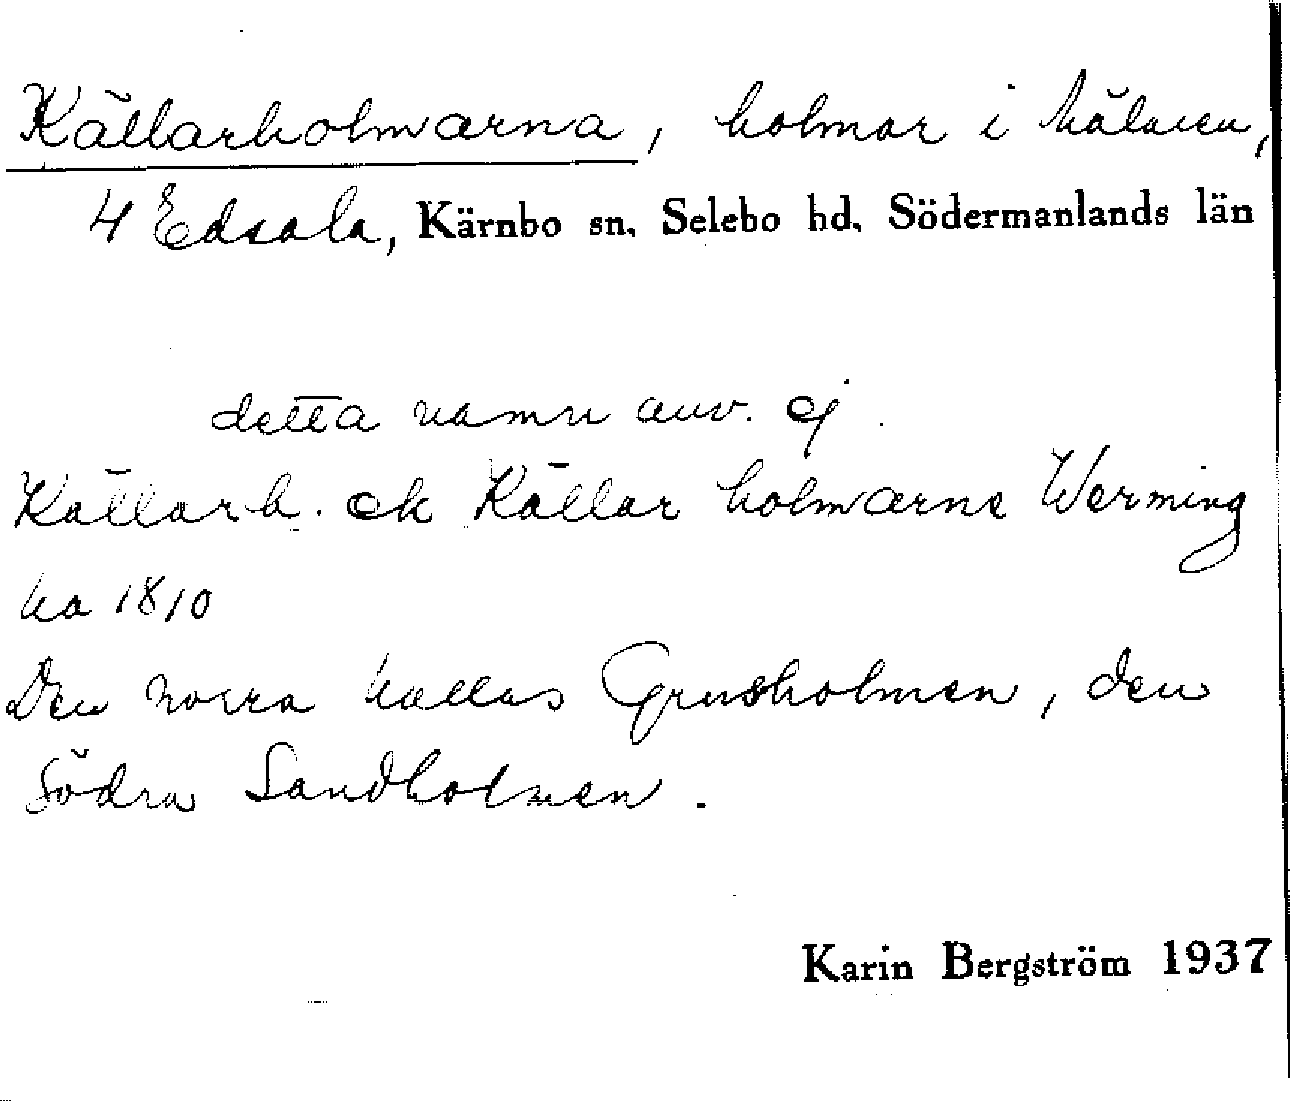 Källarholmarna, holmar i Mälaren,
4 Edsala, Kärnbo sn. Selebo hd. Södermanlands län
detta namn anv. ej.
Källarh. ek Källar holmarne Werming
ka 1810
Den norra kallas Grusholmen, den
södra Sandholmen.
Karin Bergström 1937